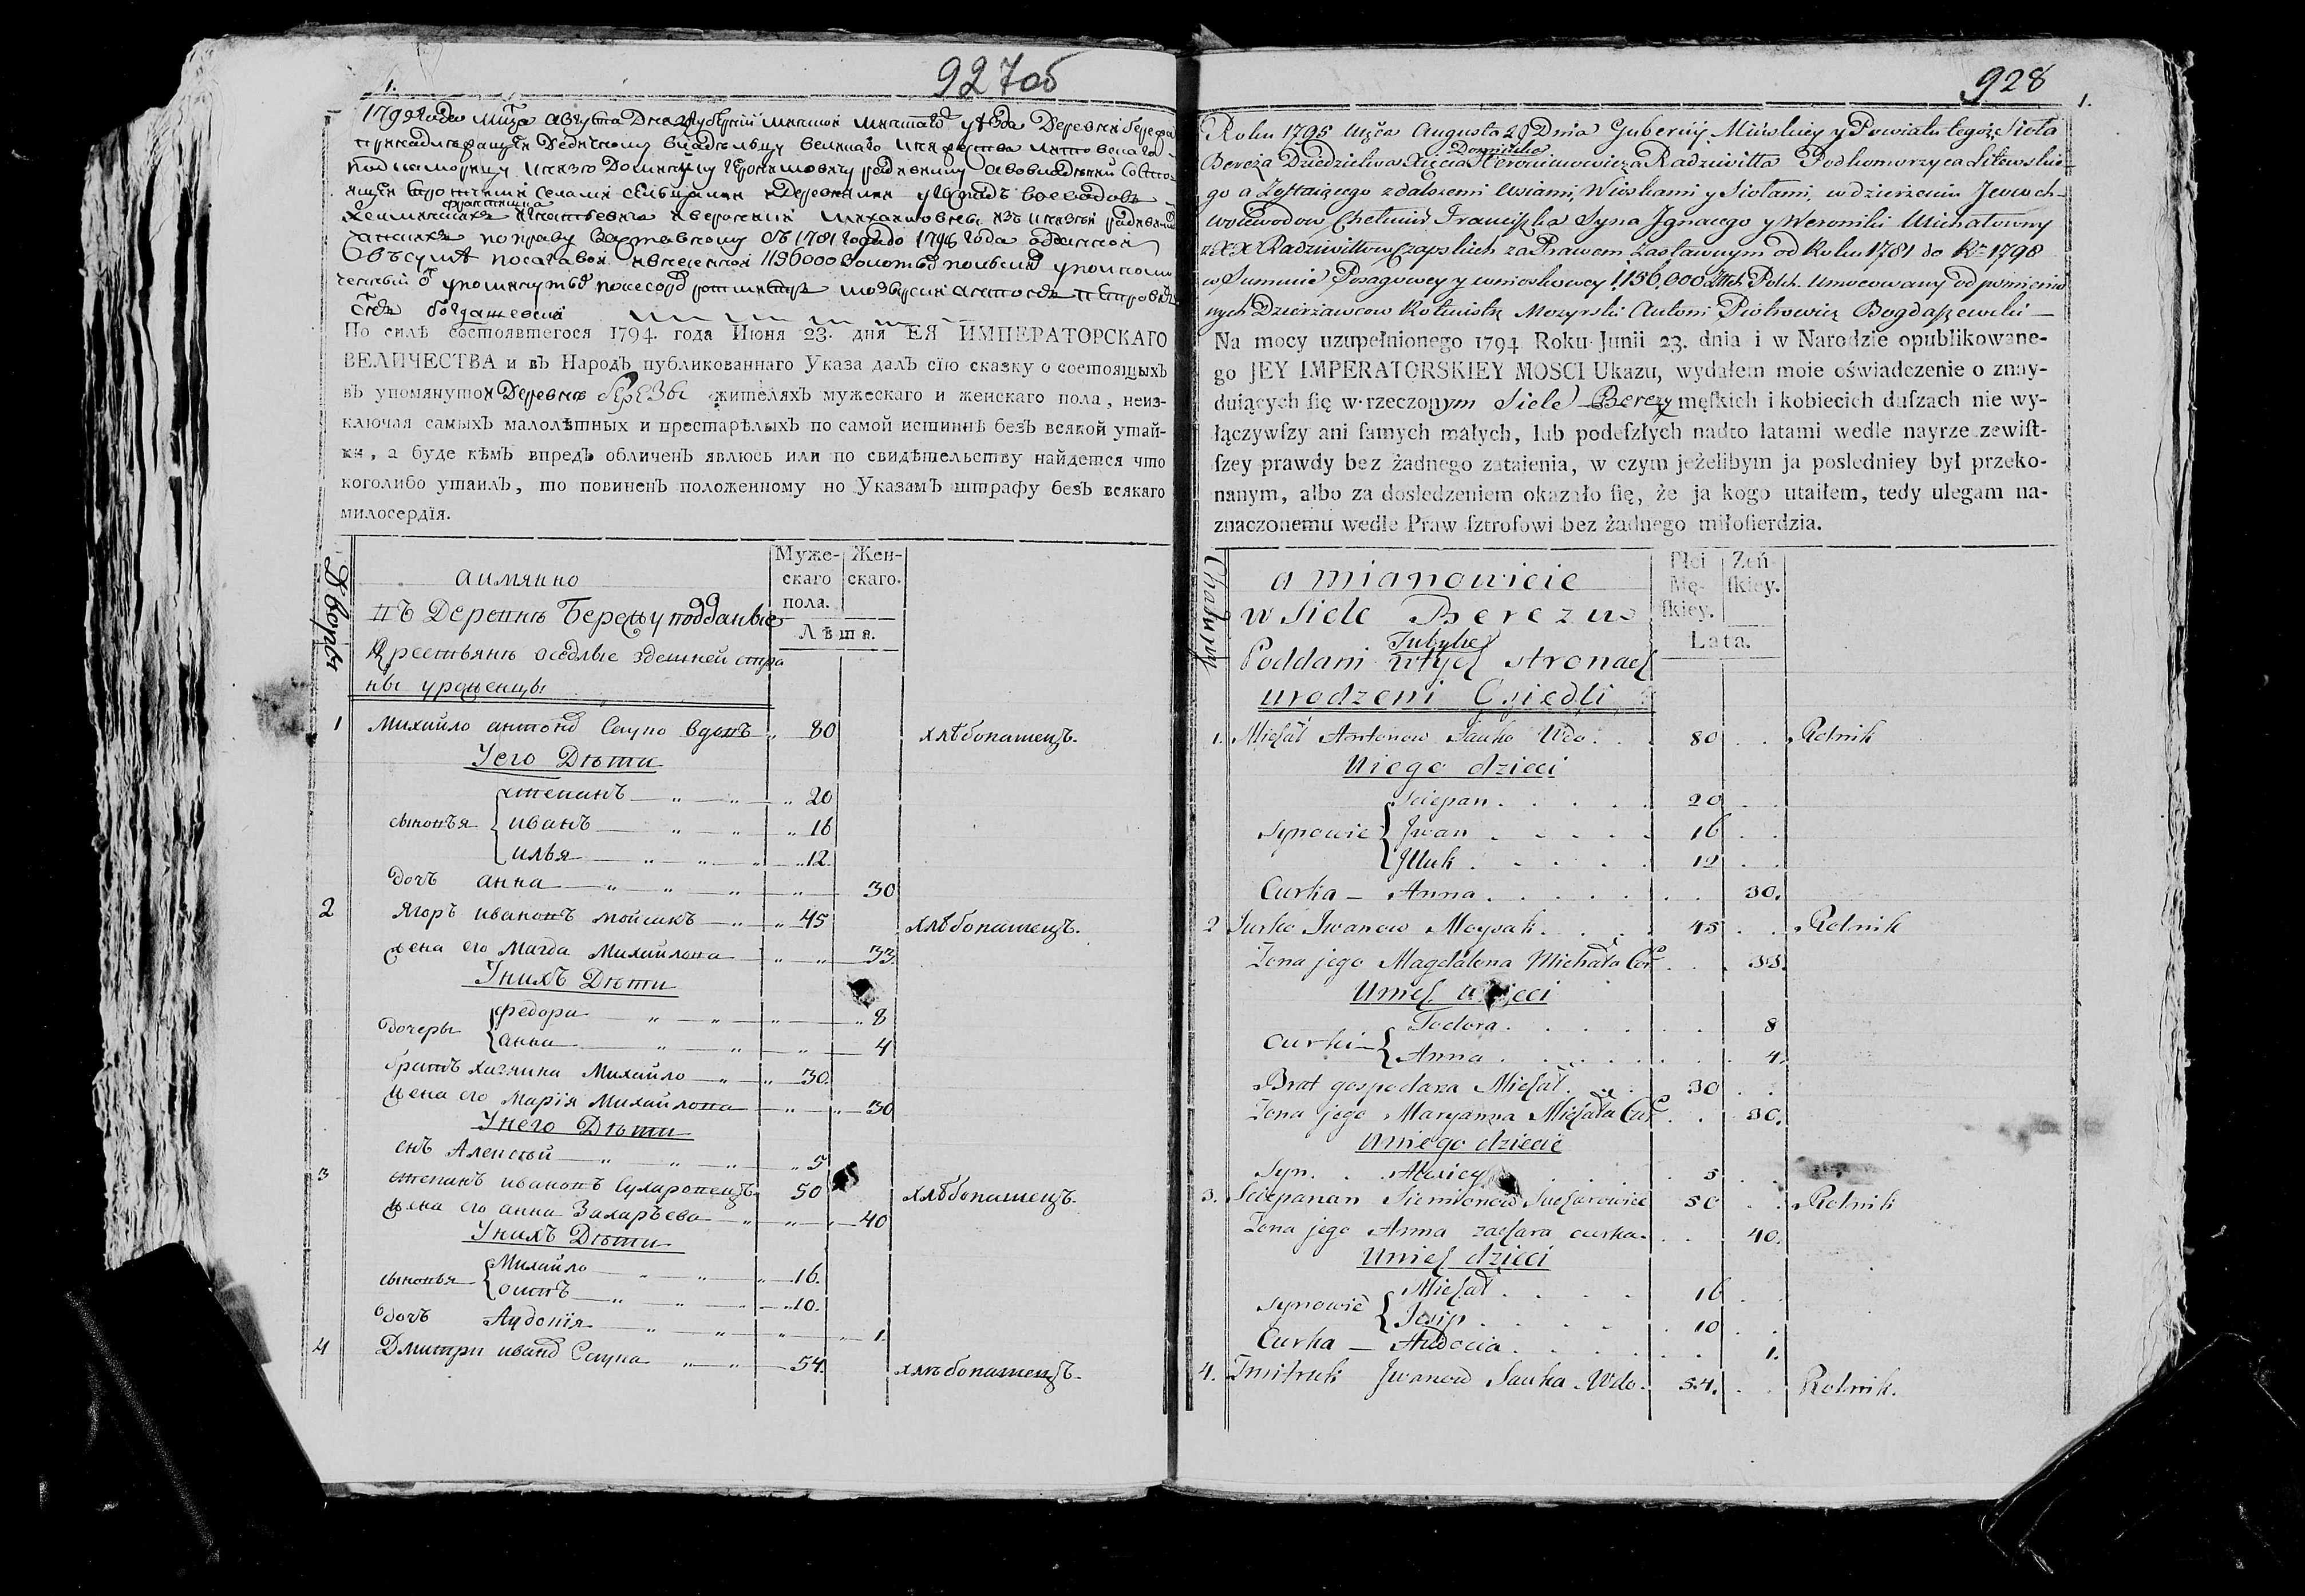 927об
1.
1795 года мца августа дня 29 губернии минской минскаго уезда деревни береза
принадлежащей дедичному владельцу великаго княжества литовскаго
подкоморицу князю Доминику Геронимовичу радзивилу
франтишка
по праву заставному съ 1781 года до 1798 года
1156000
богдашевскій
По силѣ состоявшегося 1794. года Июня 23. дня ЕЯ ИМПЕРАТОРСКАГО
ВЕЛИЧЕСТВА и въ Народъ публикованнаго Указа далъ сїю сказку о состоящыхъ
въ упомянутой Деревне БЕРЕЗЫ жителяхъ мужескаго и женскаго пола, неиз-
ключая самыхъ малолѣтныхъ и престарѣлыхъ по самой истиннѣ безъ всякой утай-
ки, а буде кѣмъ впредь обличенъ явлюсь или по свидѣтельству найдется что
коголибо утаилъ, то повиненъ положенному по Указамъ штрафу безъ всякаго
милосердїя.
Дворы
аимянно
Муже-
скаго
пола.
Жен-
скаго.
Лѣта.
въ Деревнѣ Березы подданые
крестьянѣ оседлые здешней стра
ны уроженцы
1 Михайло антоновъ Саука вдовъ 80 хлѣбопашецъ.
У его Дѣти
сыновья { степанъ 20
иванъ 16
илья 12.
дочъ анна 30
2 Ягоръ ивановъ мойсакъ 45 хлѣбопашецъ.
жена его Магда Михайлова 33.
У нихъ Дѣти
дочеры { федора 8
анна 4
братъ хазяина Михайло 30.
жена его Марія Михайлова 30
У него Дѣти
снъ Алексѣй 5
3 степанъ ивановъ Сухаровецъ 50 хлѣбопашецъ.
жена его анна Захаръева 40
У нихъ Дѣти
сыновья { Михайло 16.
осипъ 10.
дочъ Аудокія 1.
4 Дмитри ивановъ Саука 54. хлѣбопашецъ.
928
1.
Roku 1795 Mṡca Augusta 29 Dnia Gubernij Mińskiey y Powiatu tegoż Sioła
Dominika
Bereza Dziedzictwa Xięcia Heronimowicza Radziwiłła Podkomorzyca Litewskie-
go a Zostaiącego z dalszemi Wsiami, Wioskami y Siołami, w dzierżeniu Jwwch
Woiewodow Chełmiń. Franciszka Syna Jgnacego y Weroniki Michałowny
z XX Radziwiłłow Czapskich za Prawem Zastawnym od Roku 1781 do Rº 1798
w Summie Posagowey y wnioskowey 1,156,000 złłch Polsk. Umocowany od pomienio
nych Dzierżawcow Rotmistrz Mozyrski Antoni Piotrowicz Bogdaszewski
Na mocy uzupełnionego 1794 Roku Junii 23. dnia i w Narodzie opublikowane-
go JEY IMPERATORSKIEY MOSCI Ukazu, wydałem moie oświadczenie o znay-
duiących ſię w rzeczonym Siele Berezy męſkich i kobiecich duſzach nie wy-
łączywſzy ani ſamych małych, lub podeſzłych nadto latami wedle nayrzeczewiſt-
ſzey prawdy bez żadnego zataienia, w czym jeżelibym ja posledniey był przeko-
nanym, albo za dosledzeniem okazało ſię, że ja kogo utaiłem, tedy ulegam na-
znaczonemu wedle Praw ſztrofowi bez żadnego miłoſierdzia.
Chałupy
a mianowicie
Płci
Mę-
ſkiey.
Zeń
ſkiey.
Lata.
w Siele Berezu
Tutylni
Poddani w tych stronach
urodzeni Osiedli
1. Michał Antonow Sauka Wdo. 80 Rolnik
U niego dzieci
Synowie { Sciepan 20
Jwan 16
Jlluk 12
Curka — Anna 30.
2 Jurko Jwanow Moysak 45 Rolnik
Zona jego Magdalena Michała Cór. 33.
U nich dzieci
Curki { Todora 8
Anna 4.
Brat gospodarza Michał 30
Zona jego Maryanna Michała Cur. 30.
U niego dziecie
Syn Alexiey 5
3. Sciepanan Siemionow Sucharowiec 50 Rolnik
Zona jego Anna zachara curka 40.
U nich dzieci
Synowie { Michał 16
Josip 10
Curka — Audocia 1.
4. Dmitruk Jwanow Sauka Wdo. 54. Rolnik.